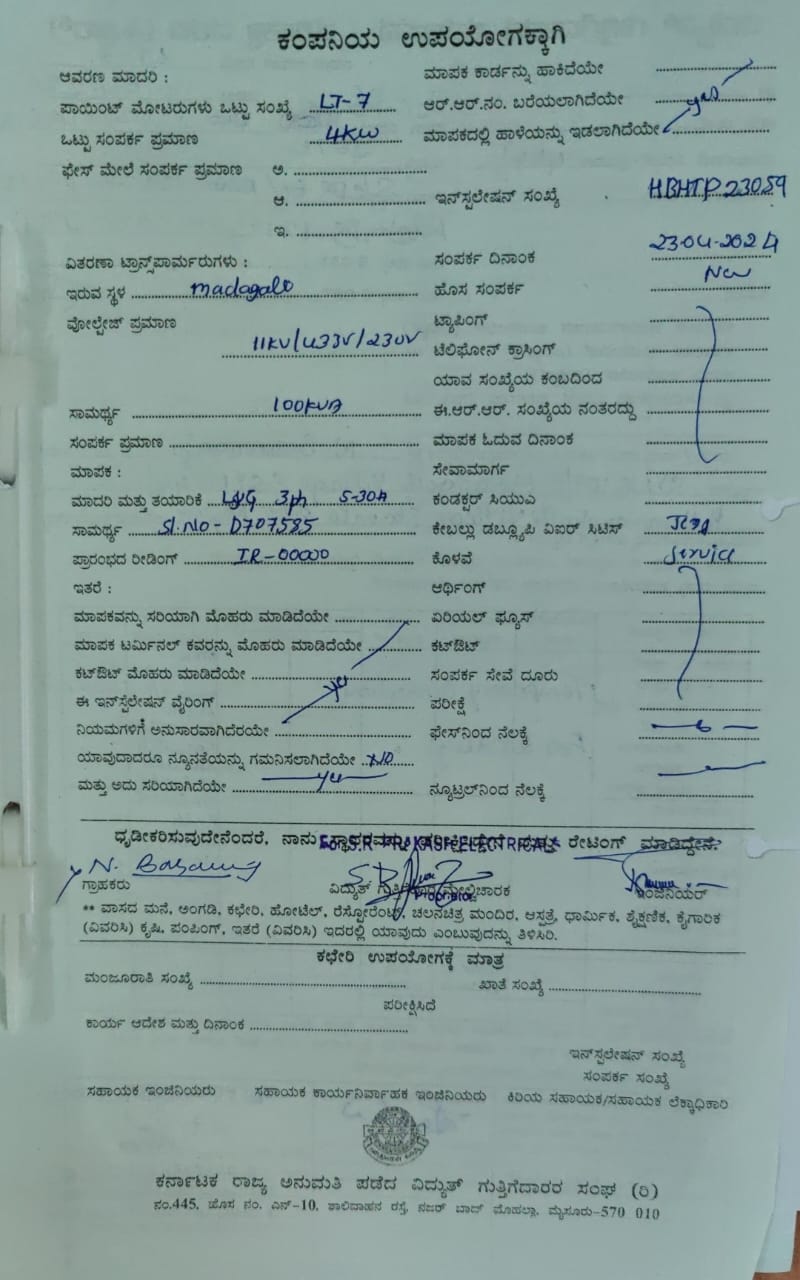 ಕಂಪನಿಯ ಉಪಯೋಗಕ್ಕಾಗಿ
ಆವರಣ ಮಾದರಿ :
ಮಾಪಕ ಕಾರ್ಡನ್ನು ಹಾಕಿದೆಯೇ
ಪಾಯಿಂಟ್ ಮೋಟರುಗಳು ಒಟ್ಟು ಸಂಖ್ಯೆ LT-7
ಆರ್.ಆರ್.ನಂ. ಬರೆಯಲಾಗಿದೆಯೇ yes
ಒಟ್ಟು ಸಂಪರ್ಕ ಪ್ರಮಾಣ 4KW
ಮಾಪಕದಲ್ಲಿ ಹಾಳೆಯನ್ನು ಇಡಲಾಗಿದೆಯೇ
ಫೇಸ್ ಮೇಲೆ ಸಂಪರ್ಕ ಪ್ರಮಾಣ ಅ.
ಆ.
ಇನ್‌ಸ್ಪಲೇಷನ್ ಸಂಖ್ಯೆ HBHTP23059
ಇ.
ವಿತರಣಾ ಟ್ರಾನ್ಸ್‌ಪಾರ್ಮರುಗಳು :
ಸಂಪರ್ಕ ದಿನಾಂಕ 23-04-2024
ಇರುವ ಸ್ಥಳ madagalt
ಹೊಸ ಸಂಪರ್ಕ New
ವೋಲ್ಟೇಜ್ ಪ್ರಮಾಣ 11KV/433V/230V
ಟ್ಯಾಪಿಂಗ್
ಟೆಲಿಫೋನ್ ಕ್ರಾಸಿಂಗ್
ಯಾವ ಸಂಖ್ಯೆಯ ಕಂಬದಿಂದ
ಸಾಮರ್ಥ್ಯ 100KVA
ಈ.ಆರ್.ಆರ್. ಸಂಖ್ಯೆಯ ನಂತರದ್ದು
ಸಂಪರ್ಕ ಪ್ರಮಾಣ
ಮಾಪಕ ಓದುವ ದಿನಾಂಕ
ಮಾಪಕ :
ಸೇವಾಮಾರ್ಗ
ಮಾದರಿ ಮತ್ತು ತಯಾರಿಕೆ L&G 3ph 5-30A
ಕಂಡಕ್ಟರ್ ಸಿಯುಎ
ಸಾಮರ್ಥ್ಯ Sl.No- D707585
ಕೇಬಲ್ಲು ಡಬ್ಲ್ಯೂಪಿ ವಿಐರ್ ಸಿಟಿಸ್
ಪ್ರಾರಂಭದ ರೀಡಿಂಗ್ IR-00000
ಕೊಳವೆ Service
ಇತರೆ :
ಆರ್ಥಿಂಗ್
ಮಾಪಕವನ್ನು ಸರಿಯಾಗಿ ಮೊಹರು ಮಾಡಿದೆಯೇ
ಏರಿಯಲ್ ಫ್ಯೂಸ್
ಮಾಪಕ ಟರ್ಮಿನಲ್ ಕವರನ್ನು ಮೊಹರು ಮಾಡಿದೆಯೇ
ಕಟ್‌ಔಟ್
ಕಟ್‌ಔಟ್ ಮೊಹರು ಮಾಡಿದೆಯೇ
ಸಂಪರ್ಕ ಸೇವೆ ದೂರು
ಈ ಇನ್‌ಸ್ಪೆಲೇಷನ್ ವೈರಿಂಗ್
ಪರೀಕ್ಷೆ
ನಿಯಮಗಳಿಗೆ ಅನುಸಾರವಾಗಿದೆರಯೇ
ಫೇಸ್‌ನಿಂದ ನೆಲಕ್ಕೆ
ಯಾವುದಾದರೂ ನ್ಯೂನತೆಯನ್ನು ಗಮನಿಸಲಾಗಿದೆಯೇ NO
ಮತ್ತು ಅದು ಸರಿಯಾಗಿದೆಯೇ yes
ನ್ಯೂಟ್ರಲ್‌ನಿಂದ ನೆಲಕ್ಕೆ
ಧೃಢೀಕರಿಸುವುದೇನೆಂದರೆ, ನಾನು ರೇಟಿಂಗ್ ಮಾಡಿದ್ದೇನೆ.
For S.R. PRAKASH ELECTRICALS
N. Basavaraj
Proprietor
ಗ್ರಾಹಕರು
ವಿದ್ಯುತ್ ಗುತ್ತಿಗೆದಾರ/ಮೇಲ್ವಿಚಾರಕ
ಇಂಜಿನಿಯರ್
** ವಾಸದ ಮನೆ, ಅಂಗಡಿ, ಕಛೇರಿ, ಹೋಟೆಲ್, ರೆಸ್ಟೋರೆಂಟ್, ಚಲನಚಿತ್ರ ಮಂದಿರ, ಆಸ್ಪತ್ರೆ, ಧಾರ್ಮಿಕ, ಶೈಕ್ಷಣಿಕ, ಕೈಗಾರಿಕ
(ವಿವರಿಸಿ) ಕೃಷಿ, ಪಂಪಿಂಗ್, ಇತರೆ (ವಿವರಿಸಿ) ಇದರಲ್ಲಿ ಯಾವುದು ಎಂಬುವುದನ್ನು ತಿಳಿಸಿರಿ.
ಕಛೇರಿ ಉಪಯೋಗಕ್ಕೆ ಮಾತ್ರ
ಮಂಜೂರಾತಿ ಸಂಖ್ಯೆ
ಖಾತೆ ಸಂಖ್ಯೆ
ಪರೀಕ್ಷಿಸಿದೆ
ಕಾರ್ಯ ಆದೇಶ ಮತ್ತು ದಿನಾಂಕ
ಇನ್‌ಸ್ಪಲೇಷನ್ ಸಂಖ್ಯೆ
ಸಂಪರ್ಕ ಸಂಖ್ಯೆ
ಸಹಾಯಕ ಇಂಜಿನಿಯರು ಸಹಾಯಕ ಕಾರ್ಯನಿರ್ವಾಹಕ ಇಂಜಿನಿಯರು ಕಿರಿಯ ಸಹಾಯಕ/ಸಹಾಯಕ ಲೆಕ್ಕಾಧಿಕಾರಿ
ಕರ್ನಾಟಕ ರಾಜ್ಯ ಅನುಮತಿ ಪಡೆದ ವಿದ್ಯುತ್ ಗುತ್ತಿಗೆದಾರರ ಸಂಘ (ರಿ)
ನಂ.445, ಹೊಸ ನಂ. ಎನ್-10, ಶಾಲಿವಾಹನ ರಸ್ತೆ, ನಜರ್ ಬಾದ್ ಮೊಹಲ್ಲಾ, ಮೈಸೂರು-570 010